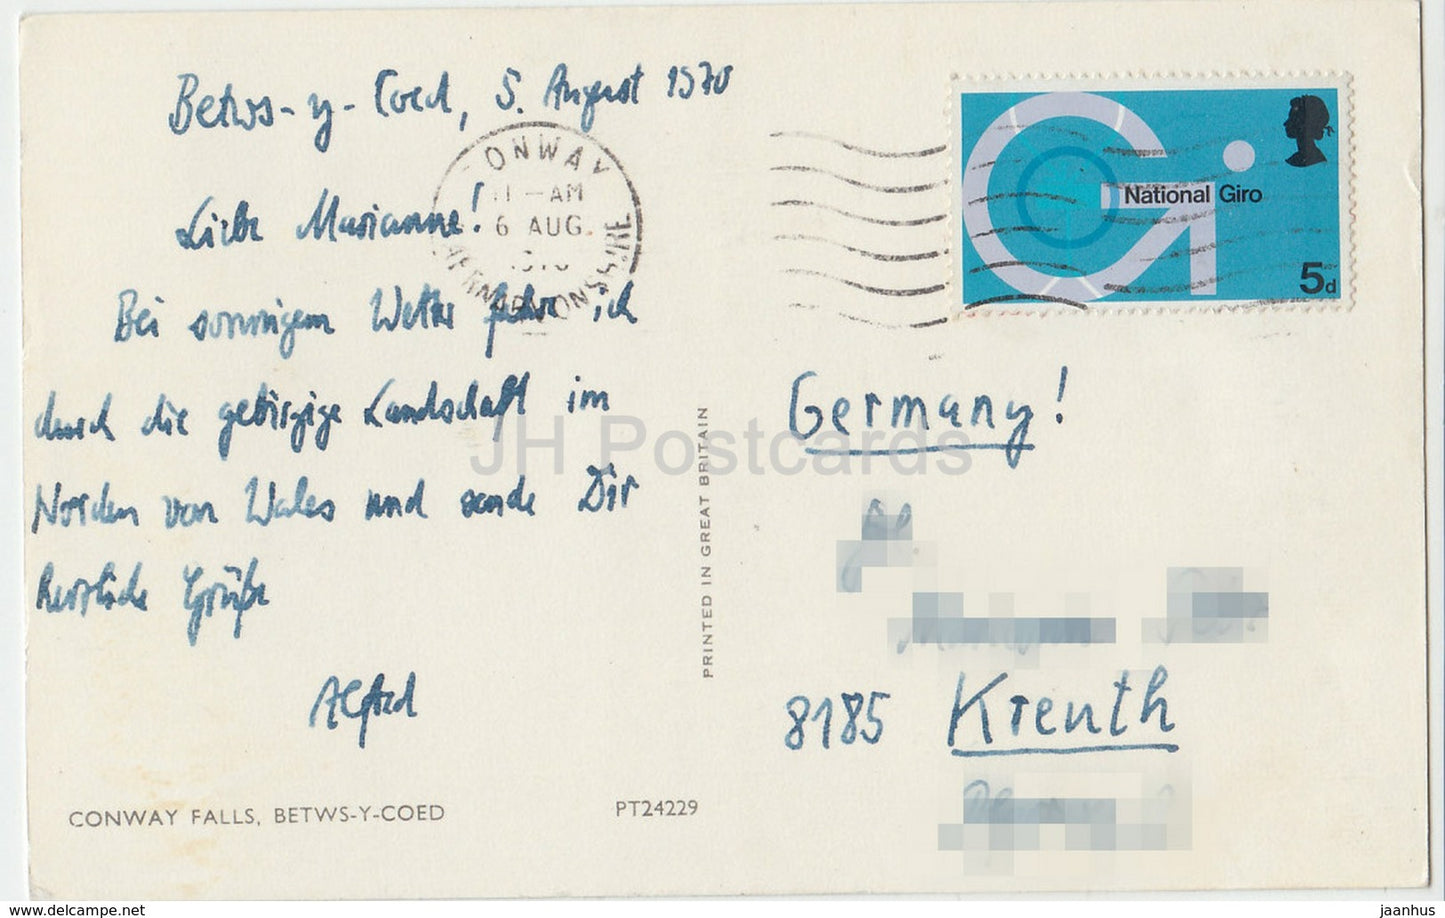 Betws-y-Coed, 5. August 1970
Liebe Marianne!
Bei sonnigem Wetter fahre ich
durch die gebirgige Landschaft im
Norden von Wales und sende Dir
herzliche Grüße
Alfred
CONWAY FALLS, BETWS-Y-COED
PT24229
PRINTED IN GREAT BRITAIN
CONWAY
11 - AM
6 AUG.
1970
CAERNARVONSHIRE
National Giro
5d
Germany!
8185 Kreuth
JH Postcards
www.delcampe.net
jaanhus